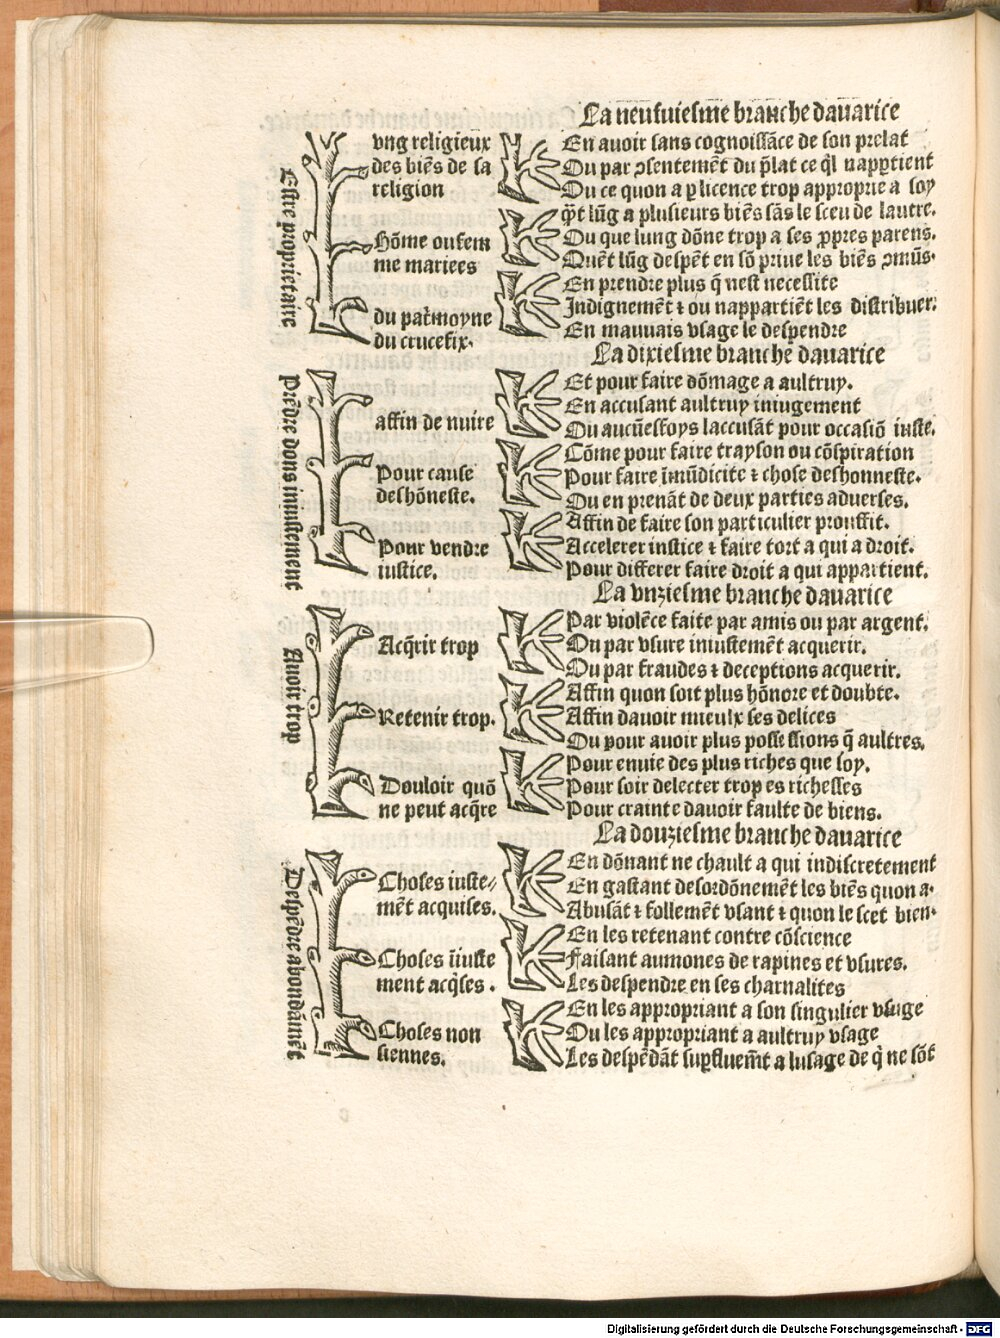 La neufuiesme branche dauarice
Estre proprietaire
vng religieux
des biẽs de sa
religion
En auoir sans cognoissãce de son prelat
Ou par ꝯsentemẽt du p̃lat ce q̃l nappꝑtient
Ou ce quon a ꝑ licence trop approprie a soy
Hõme ou fem
me mariees
q̃t lũg a plusieurs biẽs sãs le sceu de lautre.
Ou que lung dõne trop a ses ꝓpres parens.
Quẽt lũg despẽt en sõ priue les biẽs ꝯmũs.
du pat̃moyne
du crucefix.
En prendre plus q̃ nest necessite
Indignemẽt ⁊ ou nappartiẽt les distribuer.
En mauuais vsage le despendre
La dixiesme branche dauarice
Prẽdre dons iniustement
affin de nuire
Et pour faire dõmage a aultruy.
En accusant aultruy iniugement
Ou aucũesfoys laccusãt pour occasiõ iuste.
Pour cause
deshõneste.
Cõme pour faire trayson ou cõspiration
Pour faire ĩmũdicite ⁊ chose deshonneste.
Ou en prenãt de deux parties aduerses.
Pour vendre
iustice.
Affin de faire son particulier prouffit.
Accelerer iustice ⁊ faire tort a qui a droit.
Pour differer faire droit a qui appartient.
La vnziesme branche dauarice
Auoir trop
Acq̃rir trop
Par violẽce faite par amis ou par argent.
Ou par vsure iniustemẽt acquerir.
Ou par fraudes ⁊ deceptions acquerir.
Retenir trop.
Affin quon soit plus hõnore et doubte.
Affin dauoir mieulx ses delices
Ou pour auoir plus possessions q̃ aultres.
Douloir quõ
ne peut acq̃re
Pour enuie des plus riches que soy.
Pour soir delecter trop es richesses
Pour crainte dauoir faulte de biens.
La douziesme branche dauarice
Despẽdre abondãmẽt
Choses iuste⸗
mẽt acquises.
En dõnant ne chault a qui indiscretement
En gastant desordõnemẽt les biẽs quon a.
Abusãt ⁊ follemẽt vsant ⁊ quon le scet bien.
Choses ĩiuste
ment acq̃ses.
En les retenant contre cõscience
Faisant aumones de rapines et vsures.
Les despendre en ses charnalites
Choses non
siennes.
En les appropriant a son singulier vsage
Ou les appropriant a aultruy vsage
Les despẽdãt suꝑfluem̃t a lusage de q̃ ne sõt
Digitalisierung gefördert durch die Deutsche Forschungsgemeinschaft - DFG